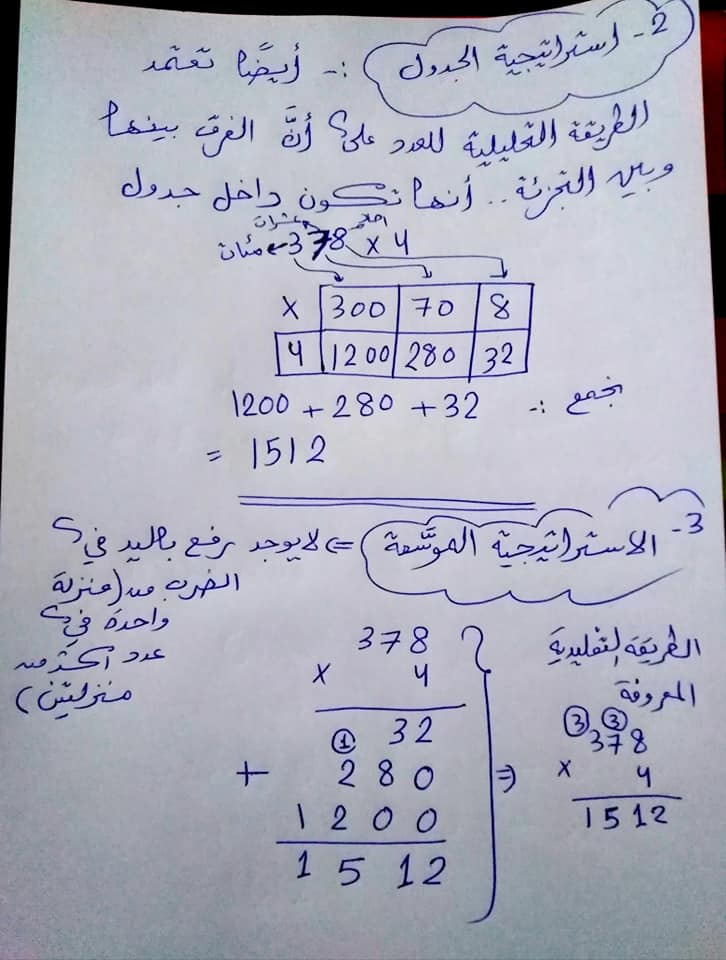 2- استراتيجية الجدول :- أيضًا تعتمد
الطريقة التحليلية للعدد على أنَّ الفرق بينها
وبين التجزئة .. أنها تكون داخل جدول
احاد عشرات
مئات ← 378 × 4
× 300 70 8
4 1200 280 32
نجمع :- 1200 + 280 + 32
= 1512
3- الاستراتيجية الموسَّعة => لا يوجد رفع باليد في
الضرب من (منزلة
واحدة في
عدد أكثر من
منزلتين)
378
× 4
32
1
+ 280
1200
1512
=>
الطريقة التقليدية
المعروفة
3 3
378
× 4
1512